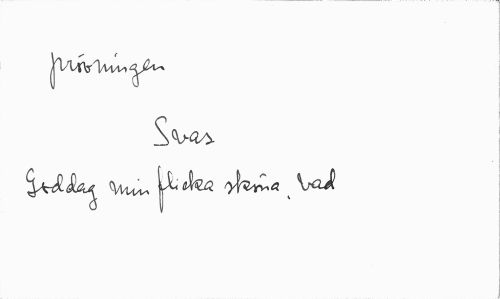 prövningen
Svar
Goddag min flicka sköna, vad